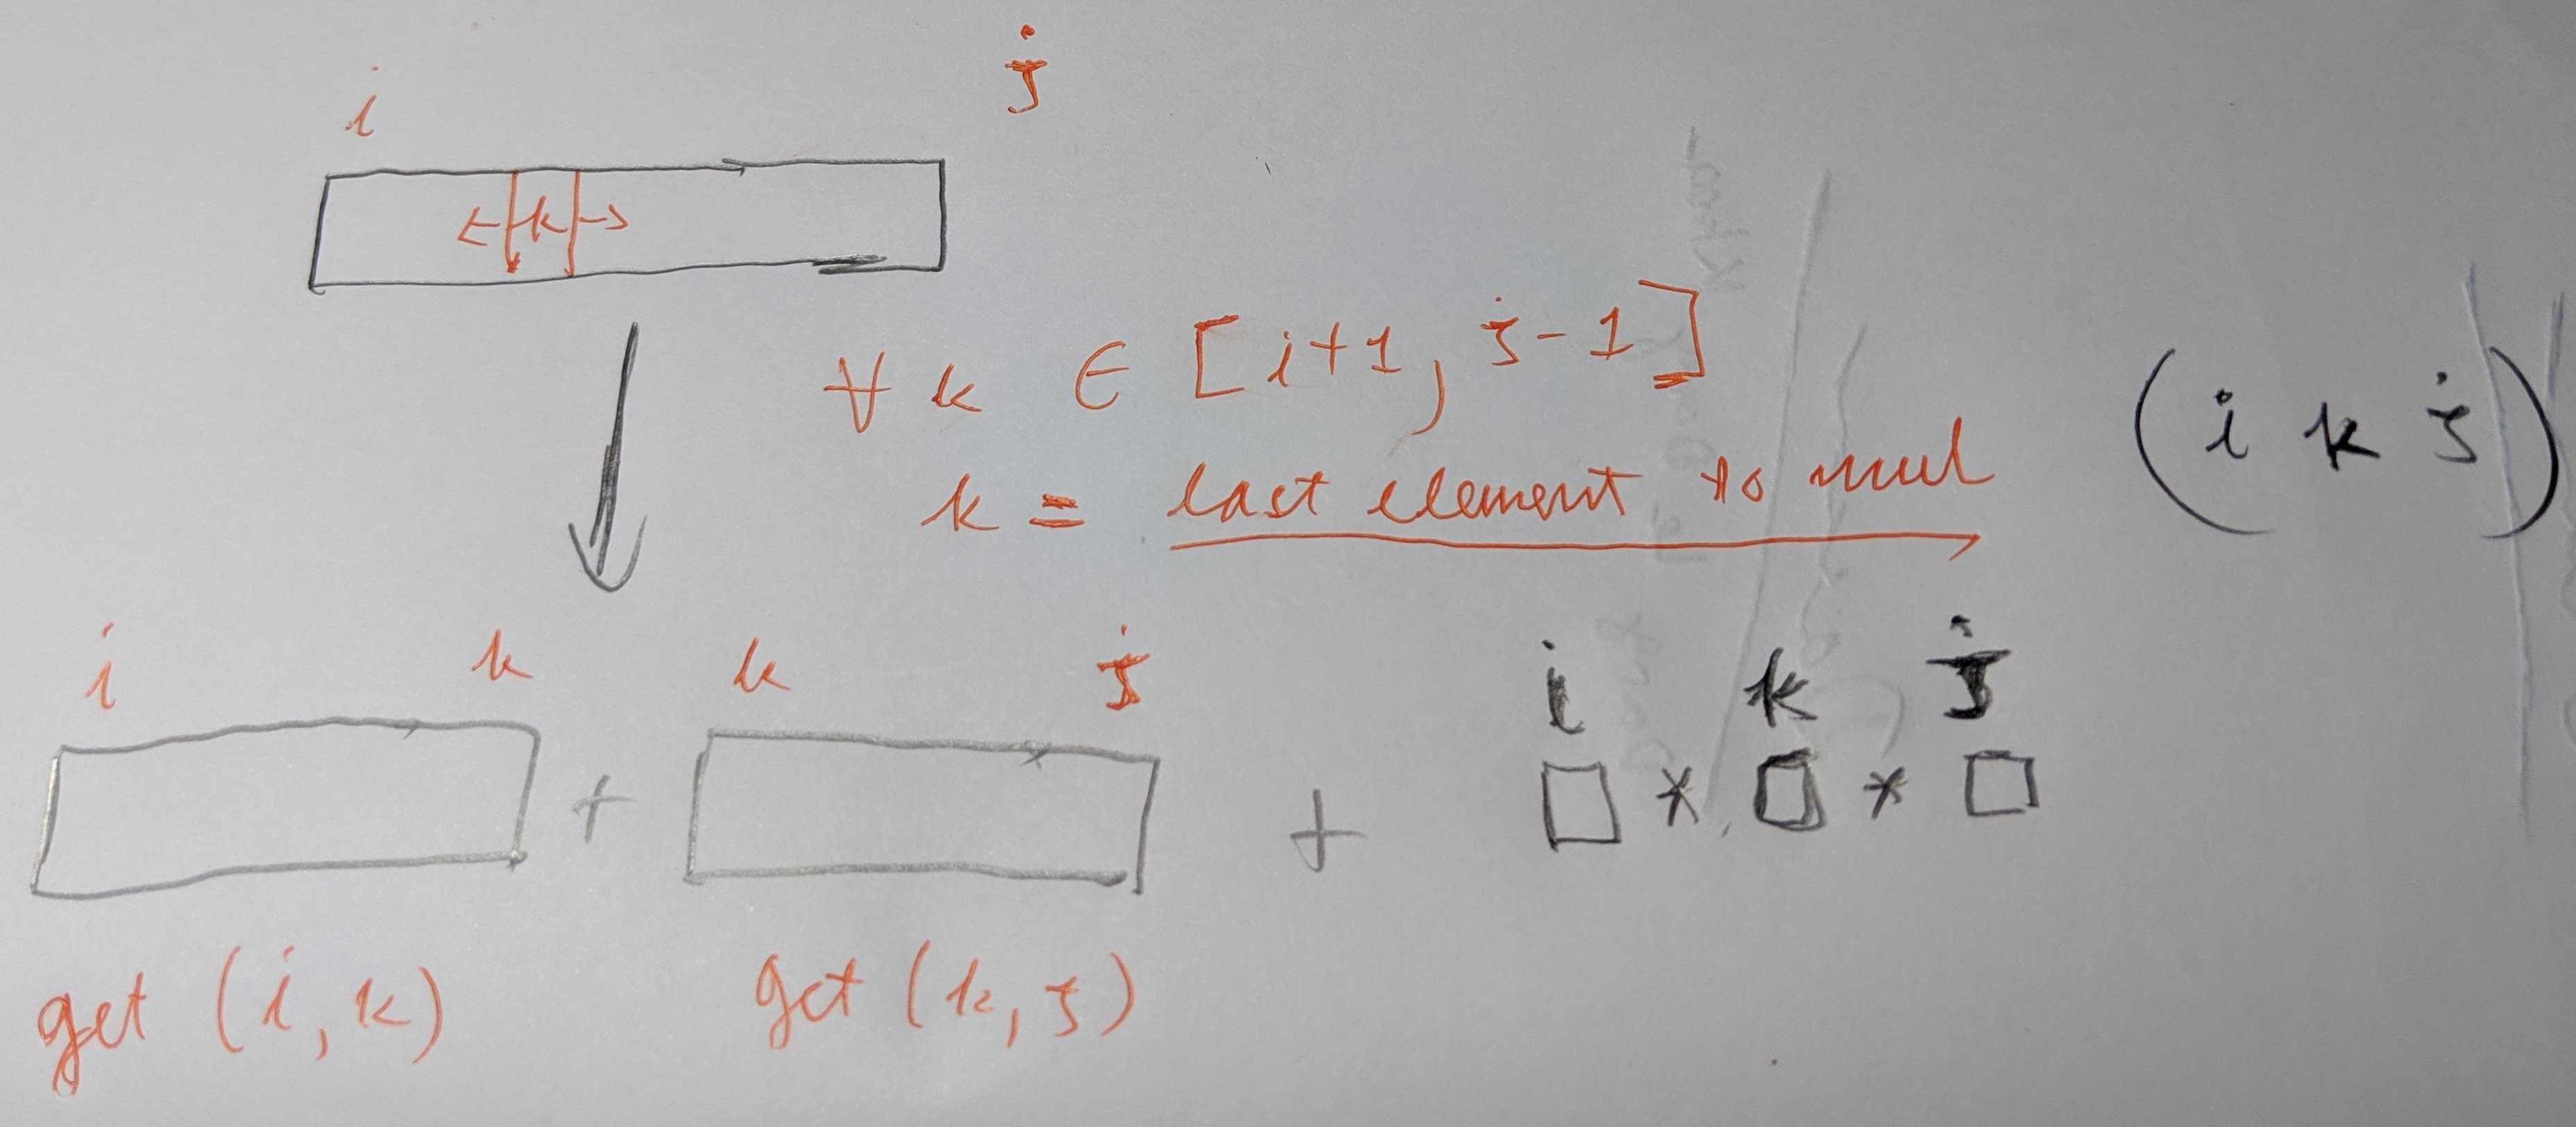 i j
k
∀ k ∈ [i+1, j-1]
k = last element to mul
(i k j)
i k k j i k j
+ + * *
get (i, k) get (k, j)